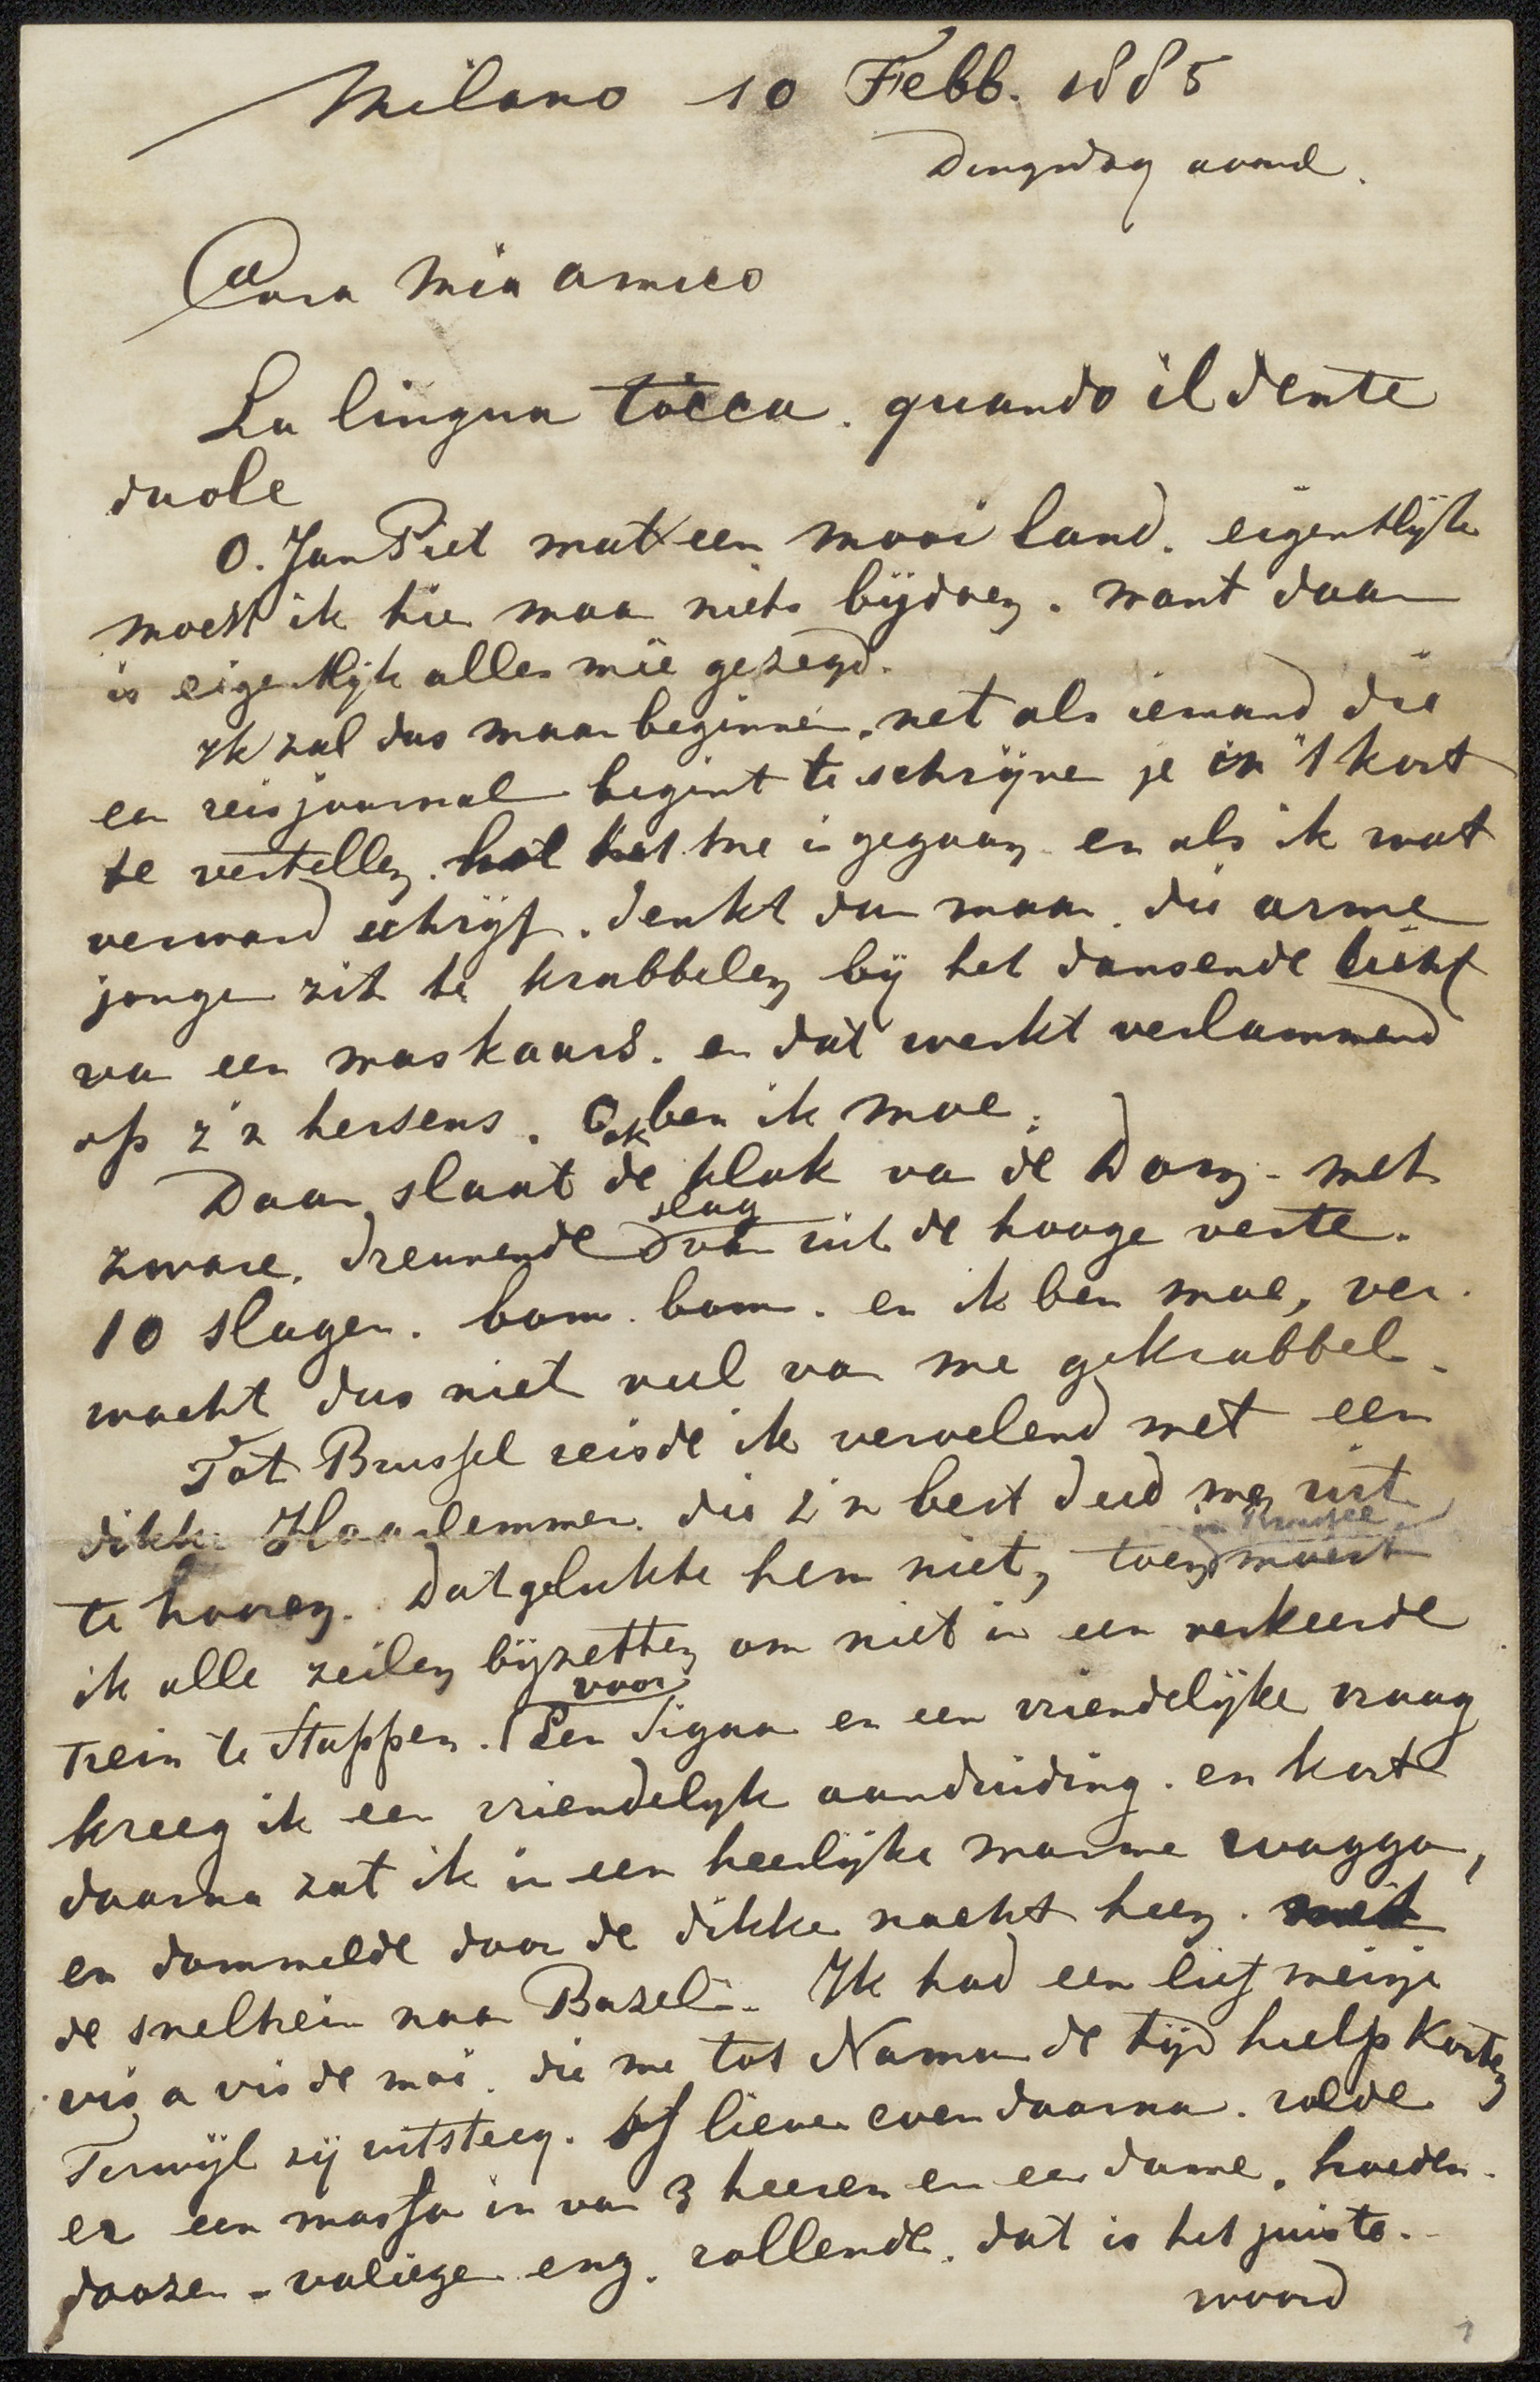 Milano 10 Febb. 1885
Dingsdag avond.
Cara mia amico
La lingua tocca. quando il dente
duole
O. Jan Piet wat een mooi land. eigentlijk
moest ik hier maar niets bijdoen. want daar
is eigentlijk alles mee gezegd.
Ik zal dus maar beginnen, net als iemand die
een reisjournal begint te schrijven je in 't kort
te vertellen. hoe het me is gegaan en als ik wat
verward schrijf. denkt dan maar die arme
jongen zit te krabbelen bij het dansende licht
van een waskaars. en dat werkt verlammend
op z'n hersens. Ook ben ik moe.
Daar slaat de klok van de Dom. met
zware. dreunende slag van uit de hooge verte.
10 slagen. bom. bom. en ik ben moe, ver-
wacht dus niet veel van me gekrabbel.
Tot Brussel reisde ik vervelend met een
dikke Haarlemmer. die z'n best deed me uit
te hooren. Dat gelukte hem niet, toen in Brussel moest
ik alle zeilen bijzetten om niet in een verkeerde
trein te stappen. voor Een Sigaar en een vriendelijke vraag
kreeg ik een vriendelijk aanduiding. en kort
daarna zat ik in een heerlijke warme waggon,
en dommelde door de dikke nacht heen. met
de sneltrein naar Bazel. Ik had een lief meisje
vis a vis de moi. die me tot Namur de tijd hielp korten
Terwijl zij uitsteeg. of liever even daarna. rolde
er een massa in van 3 heeren en een dame, hoeden-
doozen - valiezen enz. rollende. dat is het juiste.
woord
1